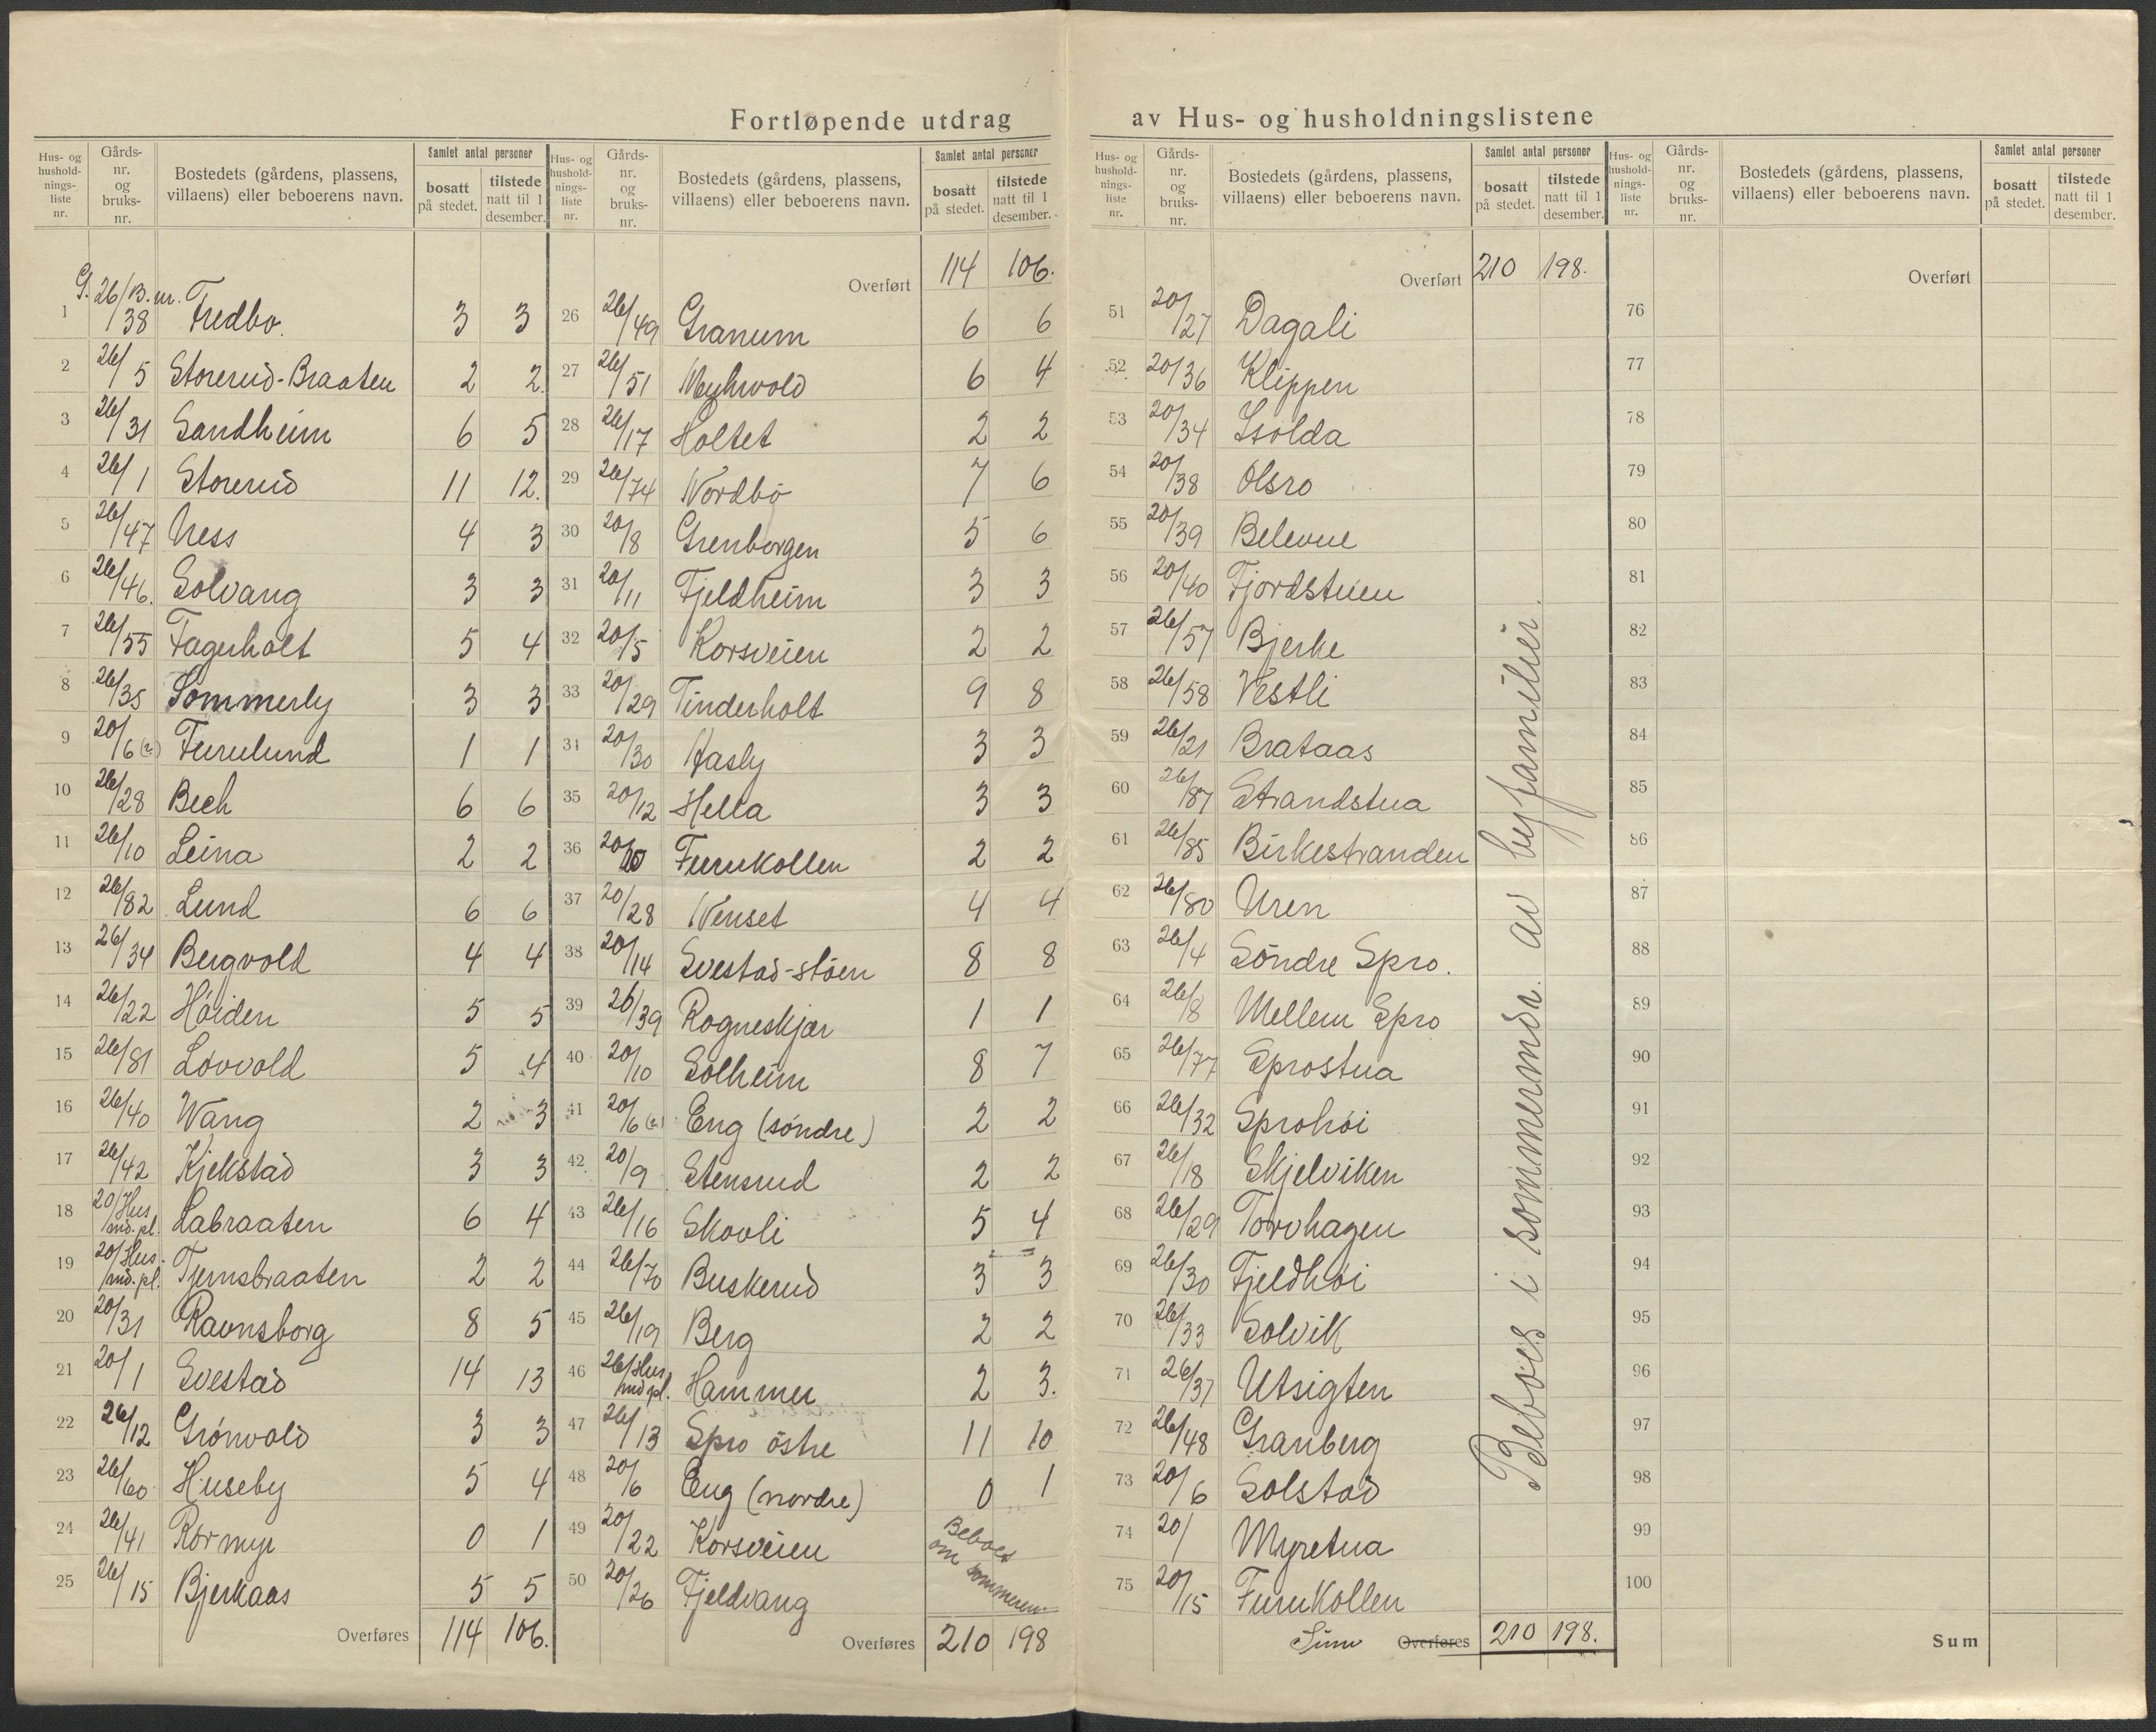 Fortløpende utdrag av Hus- og husholdningslistene
Hus- og hushold-nings-liste nr. Gårds-nr. og bruks-nr. Bostedets (gårdens, plassens, villaens) eller beboerens navn. Samlet antal personer bosatt på stedet. tilstede natt til 1 desember.
G. 26/B.nr.
1 /38 Fredbo. 3 3
2 26/5 Storerud-Braaten 2 2
3 26/31 Sandheim 6 5
4 26/1 Storerud 11 12.
5 26/47 Ness 4 3
6 26/46. Solvang 3 3
7 26/55 Fagerholt 5 4
8 26/35 Sommerly 3 3
9 20/6 Furulund 1 1
10 26/28 Bech 6 6
11 26/10 Leina 2 2
12 26/82 Lund 6 6
13 26/34 Bergvold 4 4
14 26/22 Höiden 5 5
15 26/81 Lövvold 5 4
16 26/40 Wang 2 3
17 26/42 Kjekstad 3 3
18 20/Hus md. pl. Labraaten 6 4
19 20/Hus. md. pl. Tjernsbraaten 2 2
20 20/31 Ravnsborg 8 5
21 20/1 Svestad 14 13
22 26/12 Grönvold 3 3
23 26/60 Huseby 5 4
24 26/41 Rörmyr 0 1
25 26/15 Bjerkaas 5 5
Overføres 114 106.
Hus- og hushold-nings-liste nr. Gårds-nr. og bruks-nr. Bostedets (gårdens, plassens, villaens) eller beboerens navn. Samlet antal personer bosatt på stedet. tilstede natt til 1 desember.
Overført 114 106.
26 26/49 Granum 6 6
27 26/51 Myhrvold 6 4
28 26/17 Holtet 2 2
29 26/74 Nordbö 7 6
30 20/8 Grenborgen 5 6
31 20/11 Fjeldheim 3 3
32 20/5 Korsveien 2 2
33 20/29 Tinderholt 9 8
34 20/30 Hasly 3 3
35 20/12 Hella 3 3
36 20/ Furukollen 2 2
37 20/28 Wenset 4 4
38 20/14 Svestad-stöen 8 8
39 26/39 Rogneskjær 1 1
40 20/10 Solheim 8 7
41 20/6 Eng (söndre) 2 2
42 20/9 Stensrud 2 2
43 26/16 Skovli 5 4
44 26/70 Buskerud 3 3
45 26/19 Berg 2 2
46 26/Hus md pl. Hammer 2 3.
47 26/13 Spro östre 11 10
48 20/6 Eng (nordre) 0 1
49 20/22 Korsveien
50 20/26 Fjeldvang
Beboes om sommeren.
Overføres 210 198
Hus- og hushold-nings-liste nr. Gårds-nr. og bruks-nr. Bostedets (gårdens, plassens, villaens) eller beboerens navn. Samlet antal personer bosatt på stedet. tilstede natt til 1 desember.
Overført 210 198.
51 20/27 Dagali
52 20/36 Klippen
53 20/34 Isolda
54 20/38 Olsro
55 20/39 Belevue
56 20/40 Fjordstuen
57 26/57 Bjerke
58 26/58 Vestli
59 26/21 Brataas
60 26/87 Strandstua
61 26/85 Birkestranden
62 26/80 Uren
63 26/4 Söndre Spro.
64 26/8 Mellem Spro
65 26/77 Sprostua
66 26/32 Sprohöi
67 26/18 Skjelviken
68 26/29 Torvhagen
69 26/30 Fjeldhöi
70 26/33 Solvik
71 26/37 Utsigten
72 26/48 Granberg
73 20/6 Solstad
74 20/ Myretua
75 20/15 Furukollen
Beboes i sommermdr. av byfamilier.
Sum Overføres 210 198.
Hus- og hushold-nings-liste nr. Gårds-nr. og bruks-nr. Bostedets (gårdens, plassens, villaens) eller beboerens navn. Samlet antal personer bosatt på stedet. tilstede natt til 1 desember.
Overført
76
77
78
79
80
81
82
83
84
85
86
87
88
89
90
91
92
93
94
95
96
97
98
99
100
Sum